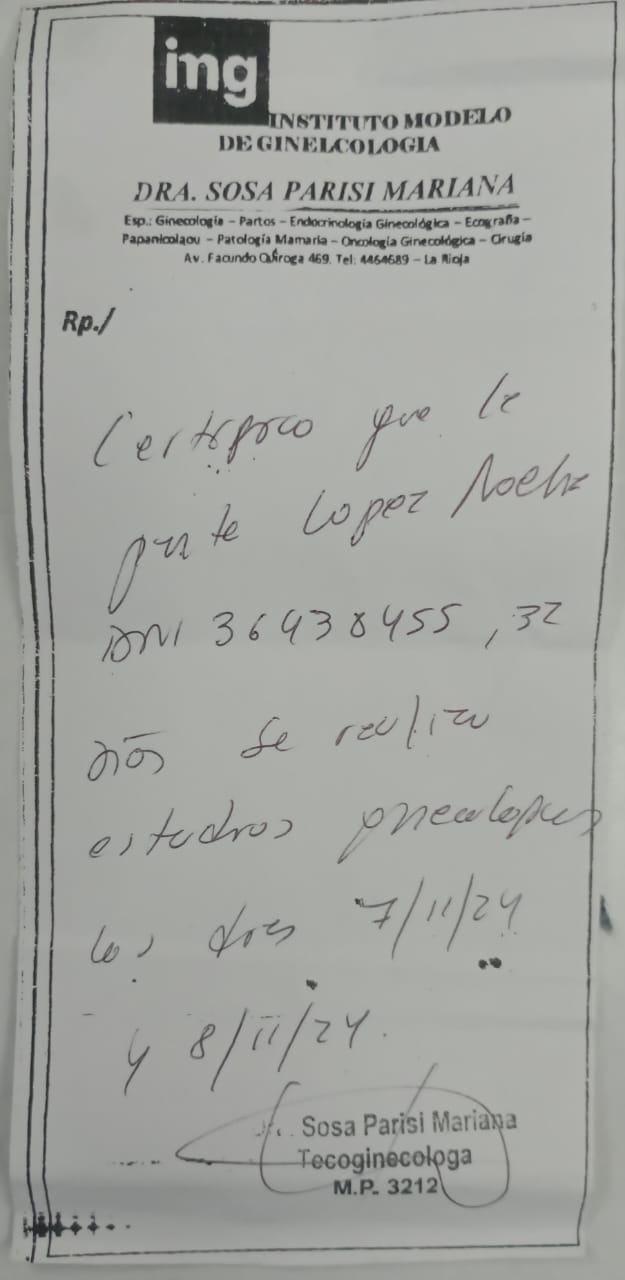 img
INSTITUTO MODELO
DE GINELCOLOGIA
DRA. SOSA PARISI MARIANA
Esp.: Ginecología – Partos – Endocrinología Ginecológica – Ecografía –
Papanicolaou – Patología Mamaria – Oncología Ginecológica – Cirugía
Av. Facundo Quiroga 469. Tel: 4464689 – La Rioja
Rp./
Certifico que la
pte Lopez Noelia
DNI 36438455, 32
años se realizo
estudios ginecologicos
los dias 7/11/24
y 8/11/24.
Sosa Parisi Mariana
Tecoginecologa
M.P. 3212